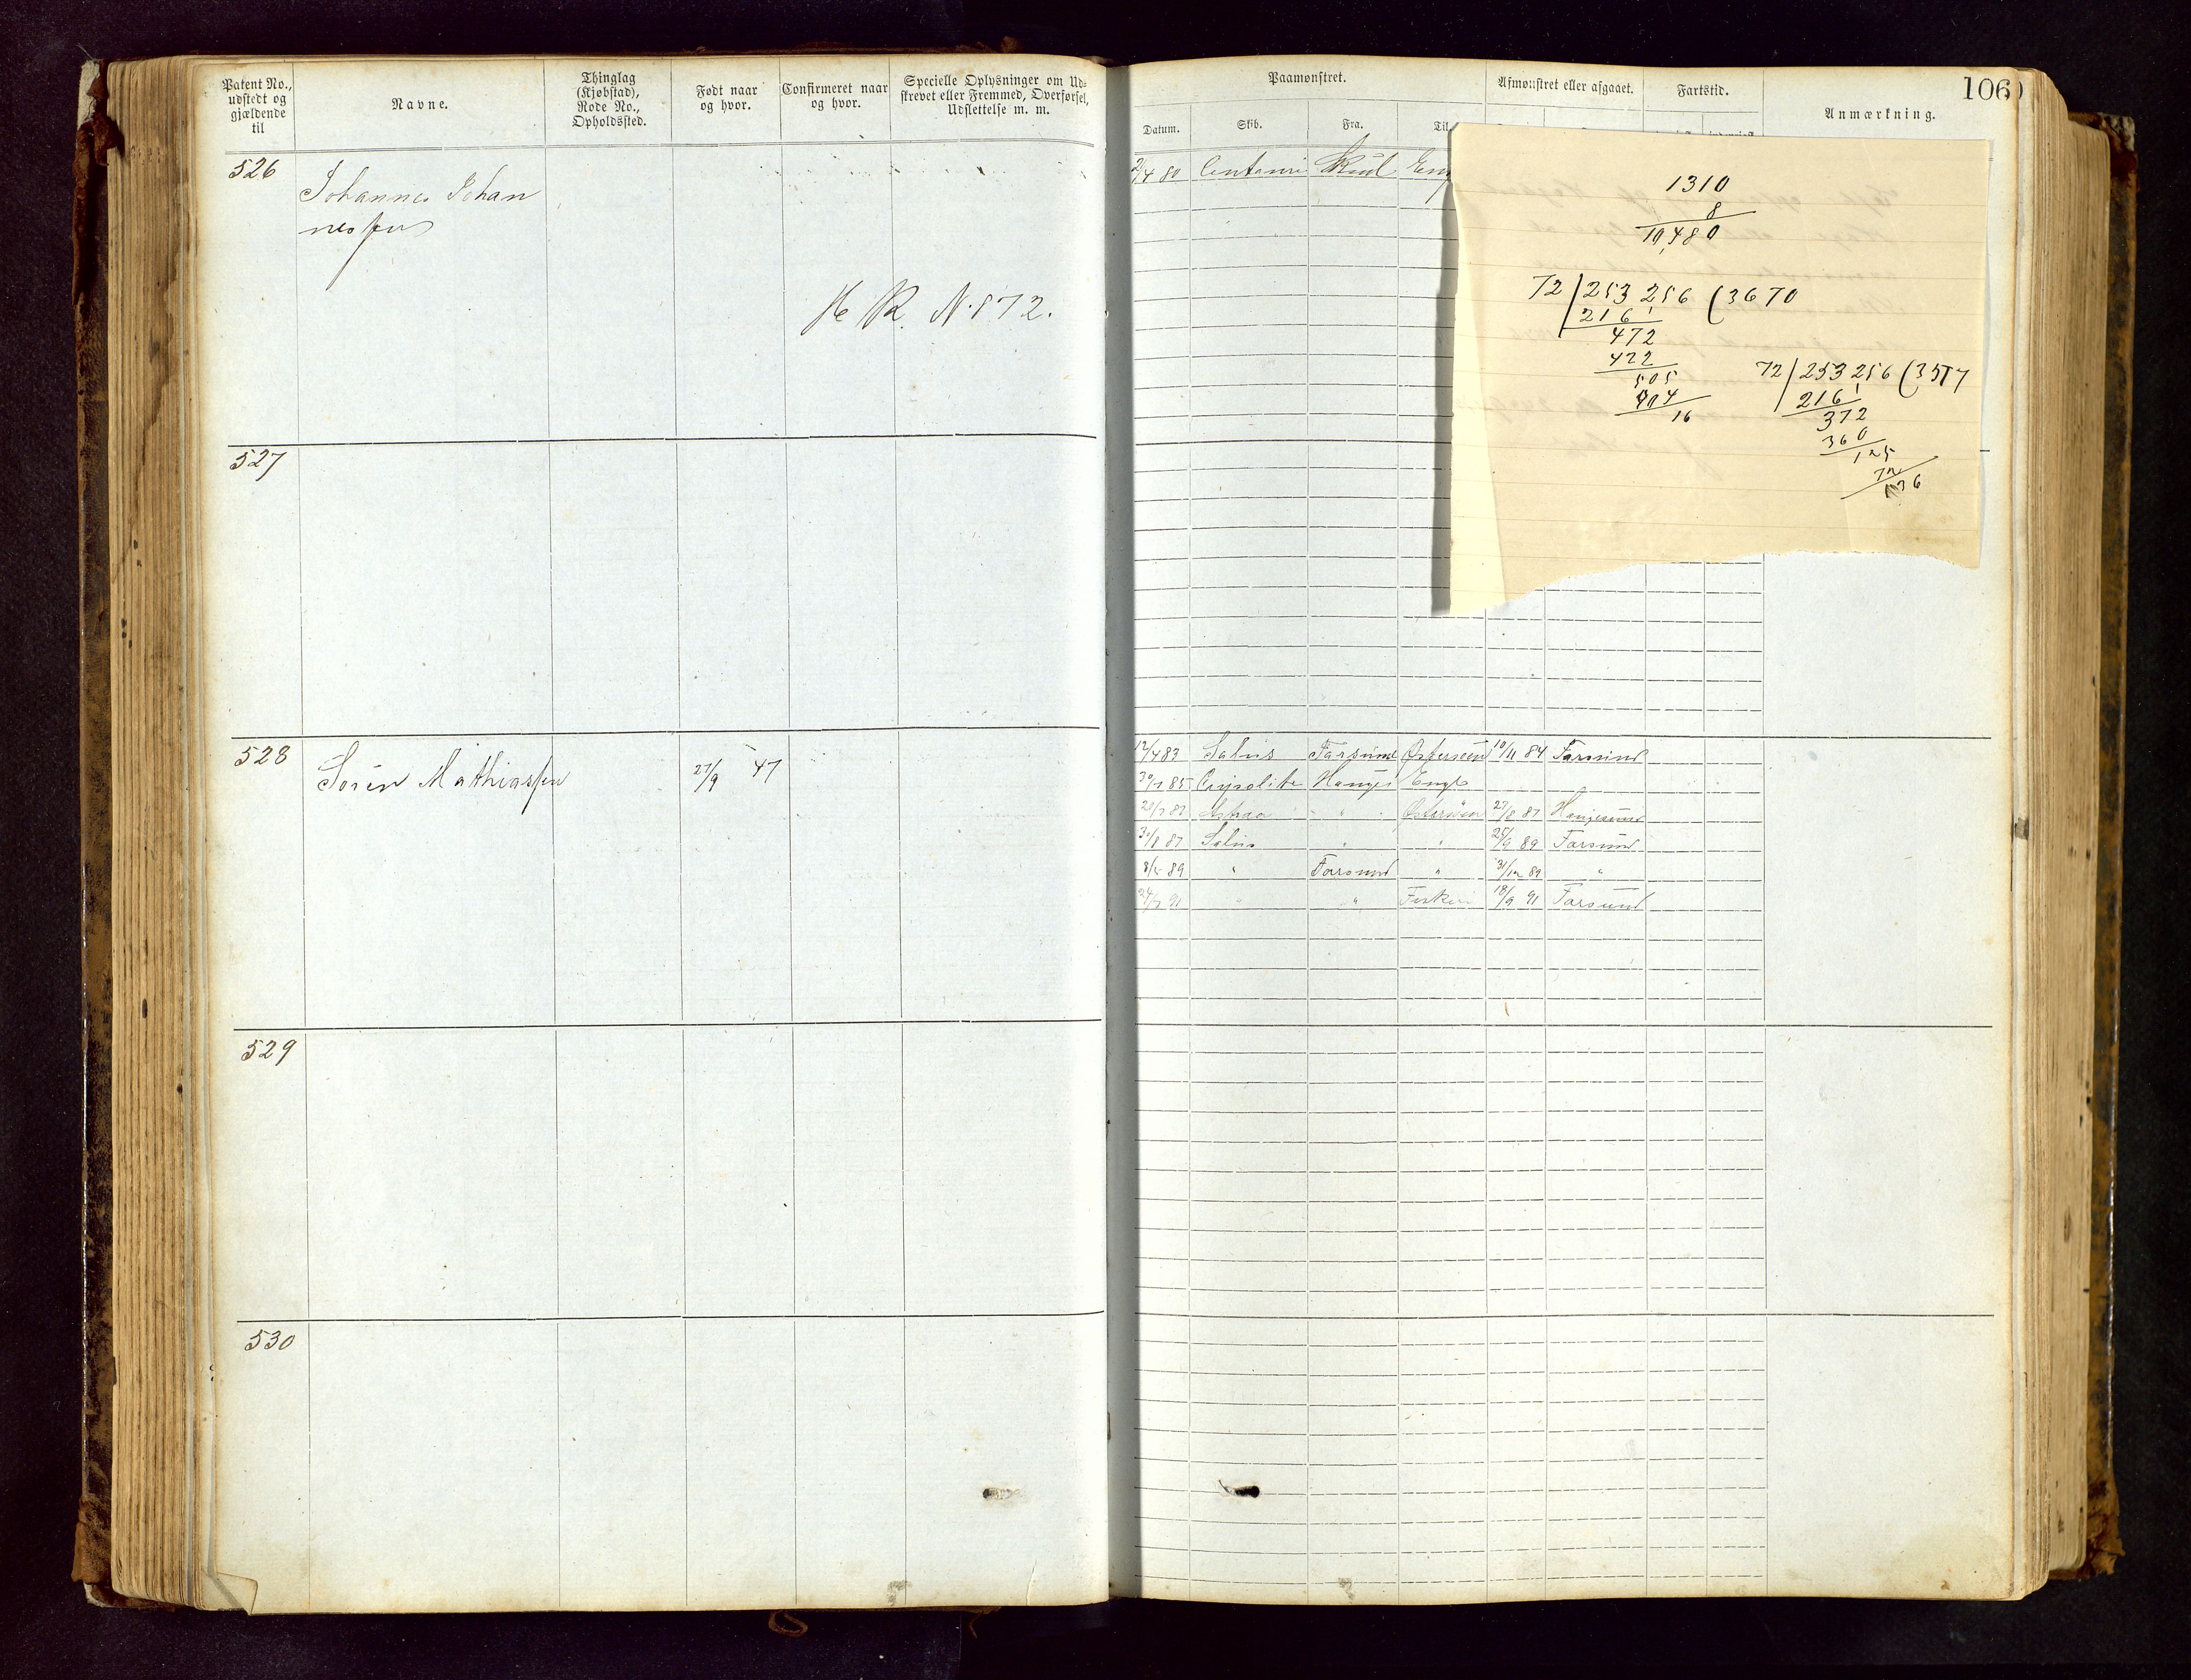 Patent No.,
udstedt og
gjældende
til
Navne.
Thinglag
(Kjøbstad),
Rode No.,
Opholdssted.
Født naar
og hvor.
Confirmeret naar
og hvor.
Specielle Oplysninger om Ud-
skrevet eller Fremmed, Overførsel,
Udslettelse m. m.
526
Johannes Johan
nessen
H R. N. 872.
527
528
Sørin Mathiassen
27/9 47
529
530
Paamønstret.
Afmønstret eller afgaaet.
Fartstid.
Anmærkning.
106
Datum.
Skib.
Fra.
Til
2/4 80 Centauri Eng
12/4 83 Salus Farsund Østersøen 10/11 84 Farsund
30/7 85 Hanges Engl
Astraa " Østersøen 27/8 87 Hangesund
30/8 87 Salus " " 25/9 89 Farsund
89 " Farsund " 31/12 89 "
91 " " 18/9 91 Farsund
1310
8
10,480
72/253 256 (3670
216
472
422
505
404
16
72/253 256 (3517
216
372
360
125
72
36